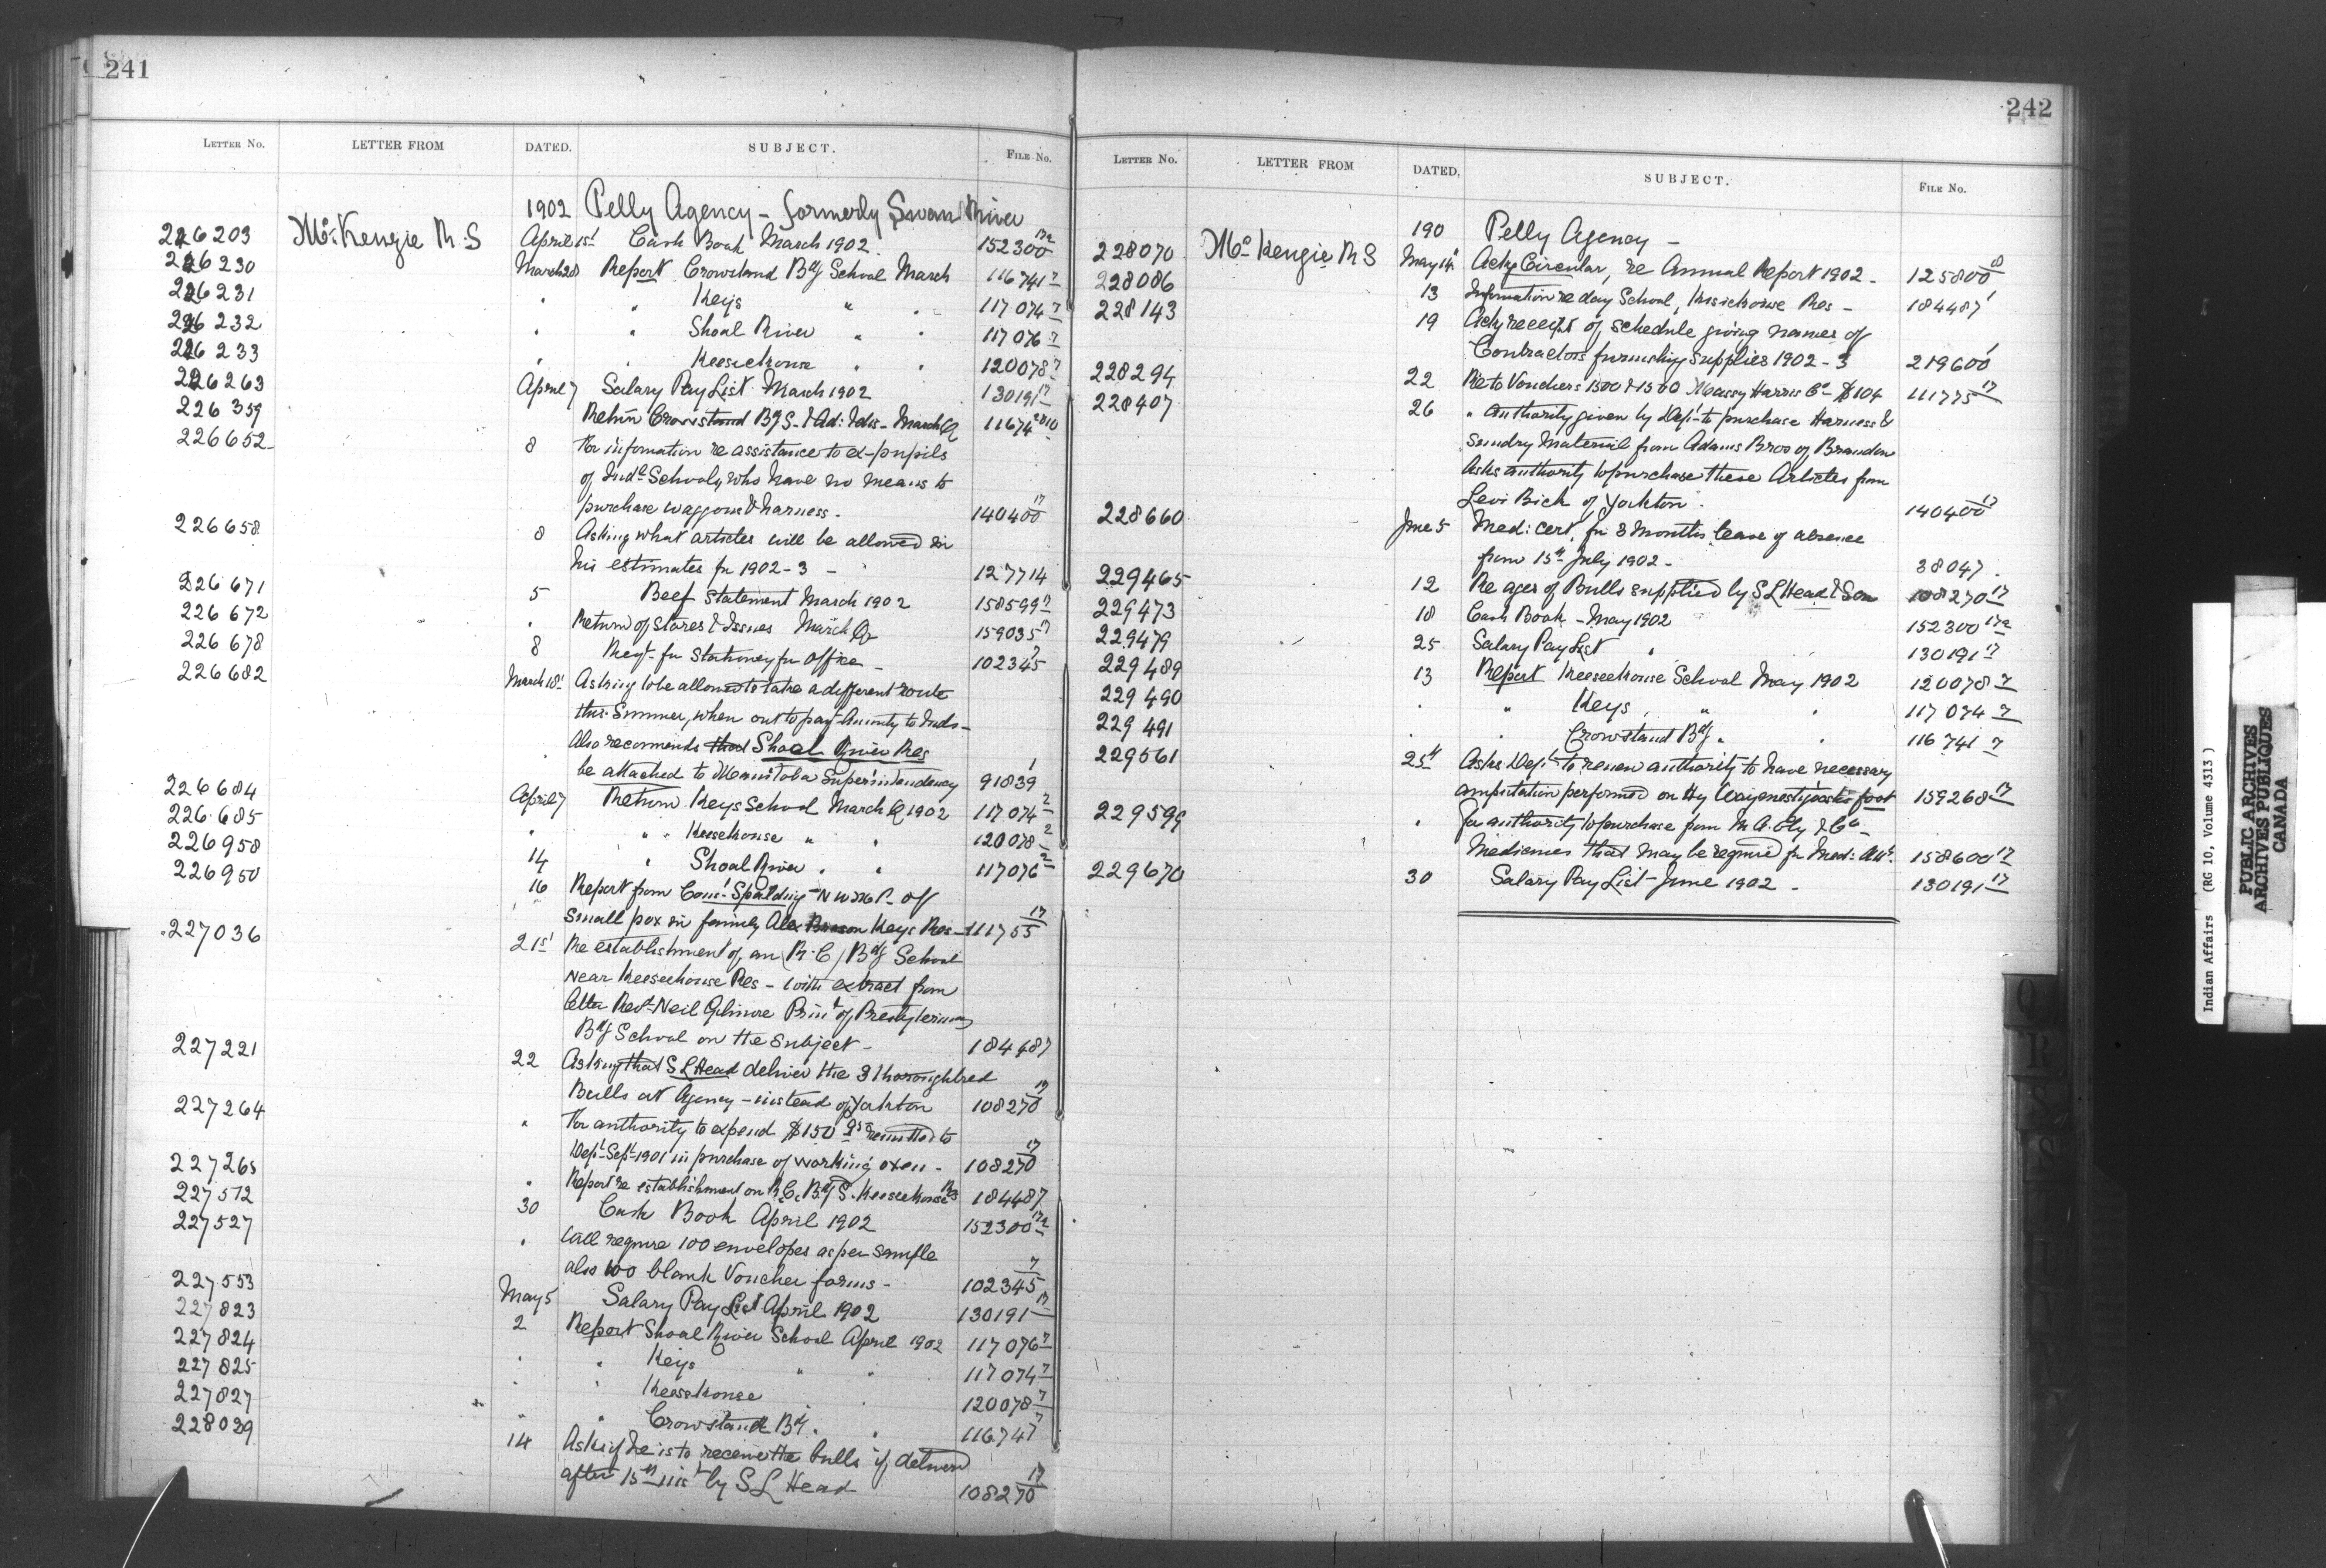 241
LETTER No. LETTER FROM DATED. SUBJECT. FILE No.
1902 Pelly Agency - formerly Swan River
226203 McKenzie R.S April 15t Cash Book March 1902 152300 17a
226230 March 28 Report Crowstand Bdg School March 116741 7
226231 " " Keys " " 117074 7
226232 " " Shoal River " " 117076 7
226233 " " Keeseekouse " " 120078 7
226263 April 7 Salary Pay List March 1902 130191 17
226359 Return Crowstand BgS. March Q 11674
226652 8 For information re assistance to ex-pupils
of Indn Schools, who have no means to
purchase waggons & harness. 140400 17
226658 8 Asking what articles will be allowed in
his estimates for 1902-3 - 127714
226671 5 Beef Statement March 1902 158599 17
226672 " Return of Stores & Issues March Qr 159035 17
226678 8 Reqt for Stationery for Office - 102345 7
226682 March 18t Asking to be allowed to take a different route
this Summer, when out to pay Annuity to Inds -
Also recommends that Shoal River Res
be attached to Manitoba Superintendency 91839 1
226684 April 7 Return Keys School March Q 1902 117074 2
226685 " " " Keesekouse " " 120078 2
226958 14 " Shoal River " " 117076 2
226950 16 Report from Comr Spalding N W M P. of
small pox in family Alex Brason Keys Res - 111755 17
227036 21st Re establishment of an (R.C) Bdg School
near Keeseekouse Res - with extract from
letter Revd Neil Gilmore Prinl of Presbyterian
Bdg School on the subject - 184487
227221 22 Asking that S L Head deliver the 3 thoroughbred
Bulls at Agency - instead of Yorkton 108270 17
227264 " For authority to expend $150 remitted to
Dept Sept 1901 in purchase of working oxen - 108270 17
227265 " Report re establishment on R.C. Bdg S. Keeseekouse Res 184487
227512 30 Cash Book April 1902 152300 17a
227527 " Will require 100 envelopes as per sample
also 100 blank Voucher forms - 102345 7
227553 May 5 Salary Pay List April 1902 130191 17
227823 2 Report Shoal River School April 1902 117076 7
227824 " " Keys " " 117074 7
227825 " " Keesekouse " 120078 7
227827 " " Crowstand Bdg. " 116741 7
228029 14 Asks if he is to receive the bulls if delivered
after 15th inst by S L Head 108270 17
242
LETTER No. LETTER FROM DATED, SUBJECT. FILE No.
190 Pelly Agency -
228070 McKenzie R S May 14" Ackg Circular, re Annual Report 1902 - 125800 10
228086 13 Information re day School, Kisickouse Res - 184487 1
228143 19 Ackg receipt of schedule giving names of
Contractors furnishing supplies 1902-3 219600 1
228294 22 Re to Vouchers 1500 & 1500 Massey Harris Co $104 111775 17
228407 26 " authority given by Dept to purchase Harness &
Sundry Material from Adams Bros of Brandon
Asks authority to purchase these Articles from
Levi Bick of Yorkton. 140400 17
228660 June 5 Med: cert. for 3 Months leave of absence
from 15th July 1902 - 38047.
229465 12 Re ages of Bulls supplied by S L Head & Son 108270 17
229473 18 Cash Book - May 1902 152300 17a
229479 25 Salary Pay List " 130191 17
229489 13 Report Keeseekouse School May 1902 120078 7
229490 " " Keys " " 117074 7
229491 " " Crowstand Bdg " " 116741 7
229561 25th Asks Dept to renew authority to have necessary
amputation performed on foot 159268 17
229599 " for authority to purchase from & Co -
Medicines that may be required for Med: Att. 158600 17
229670 30 Salary Pay List June 1902 - 130191 17
Q
R
S
Indian Affairs (RG 10, Volume 4313)
PUBLIC ARCHIVES
ARCHIVES PUBLIQUES
CANADA